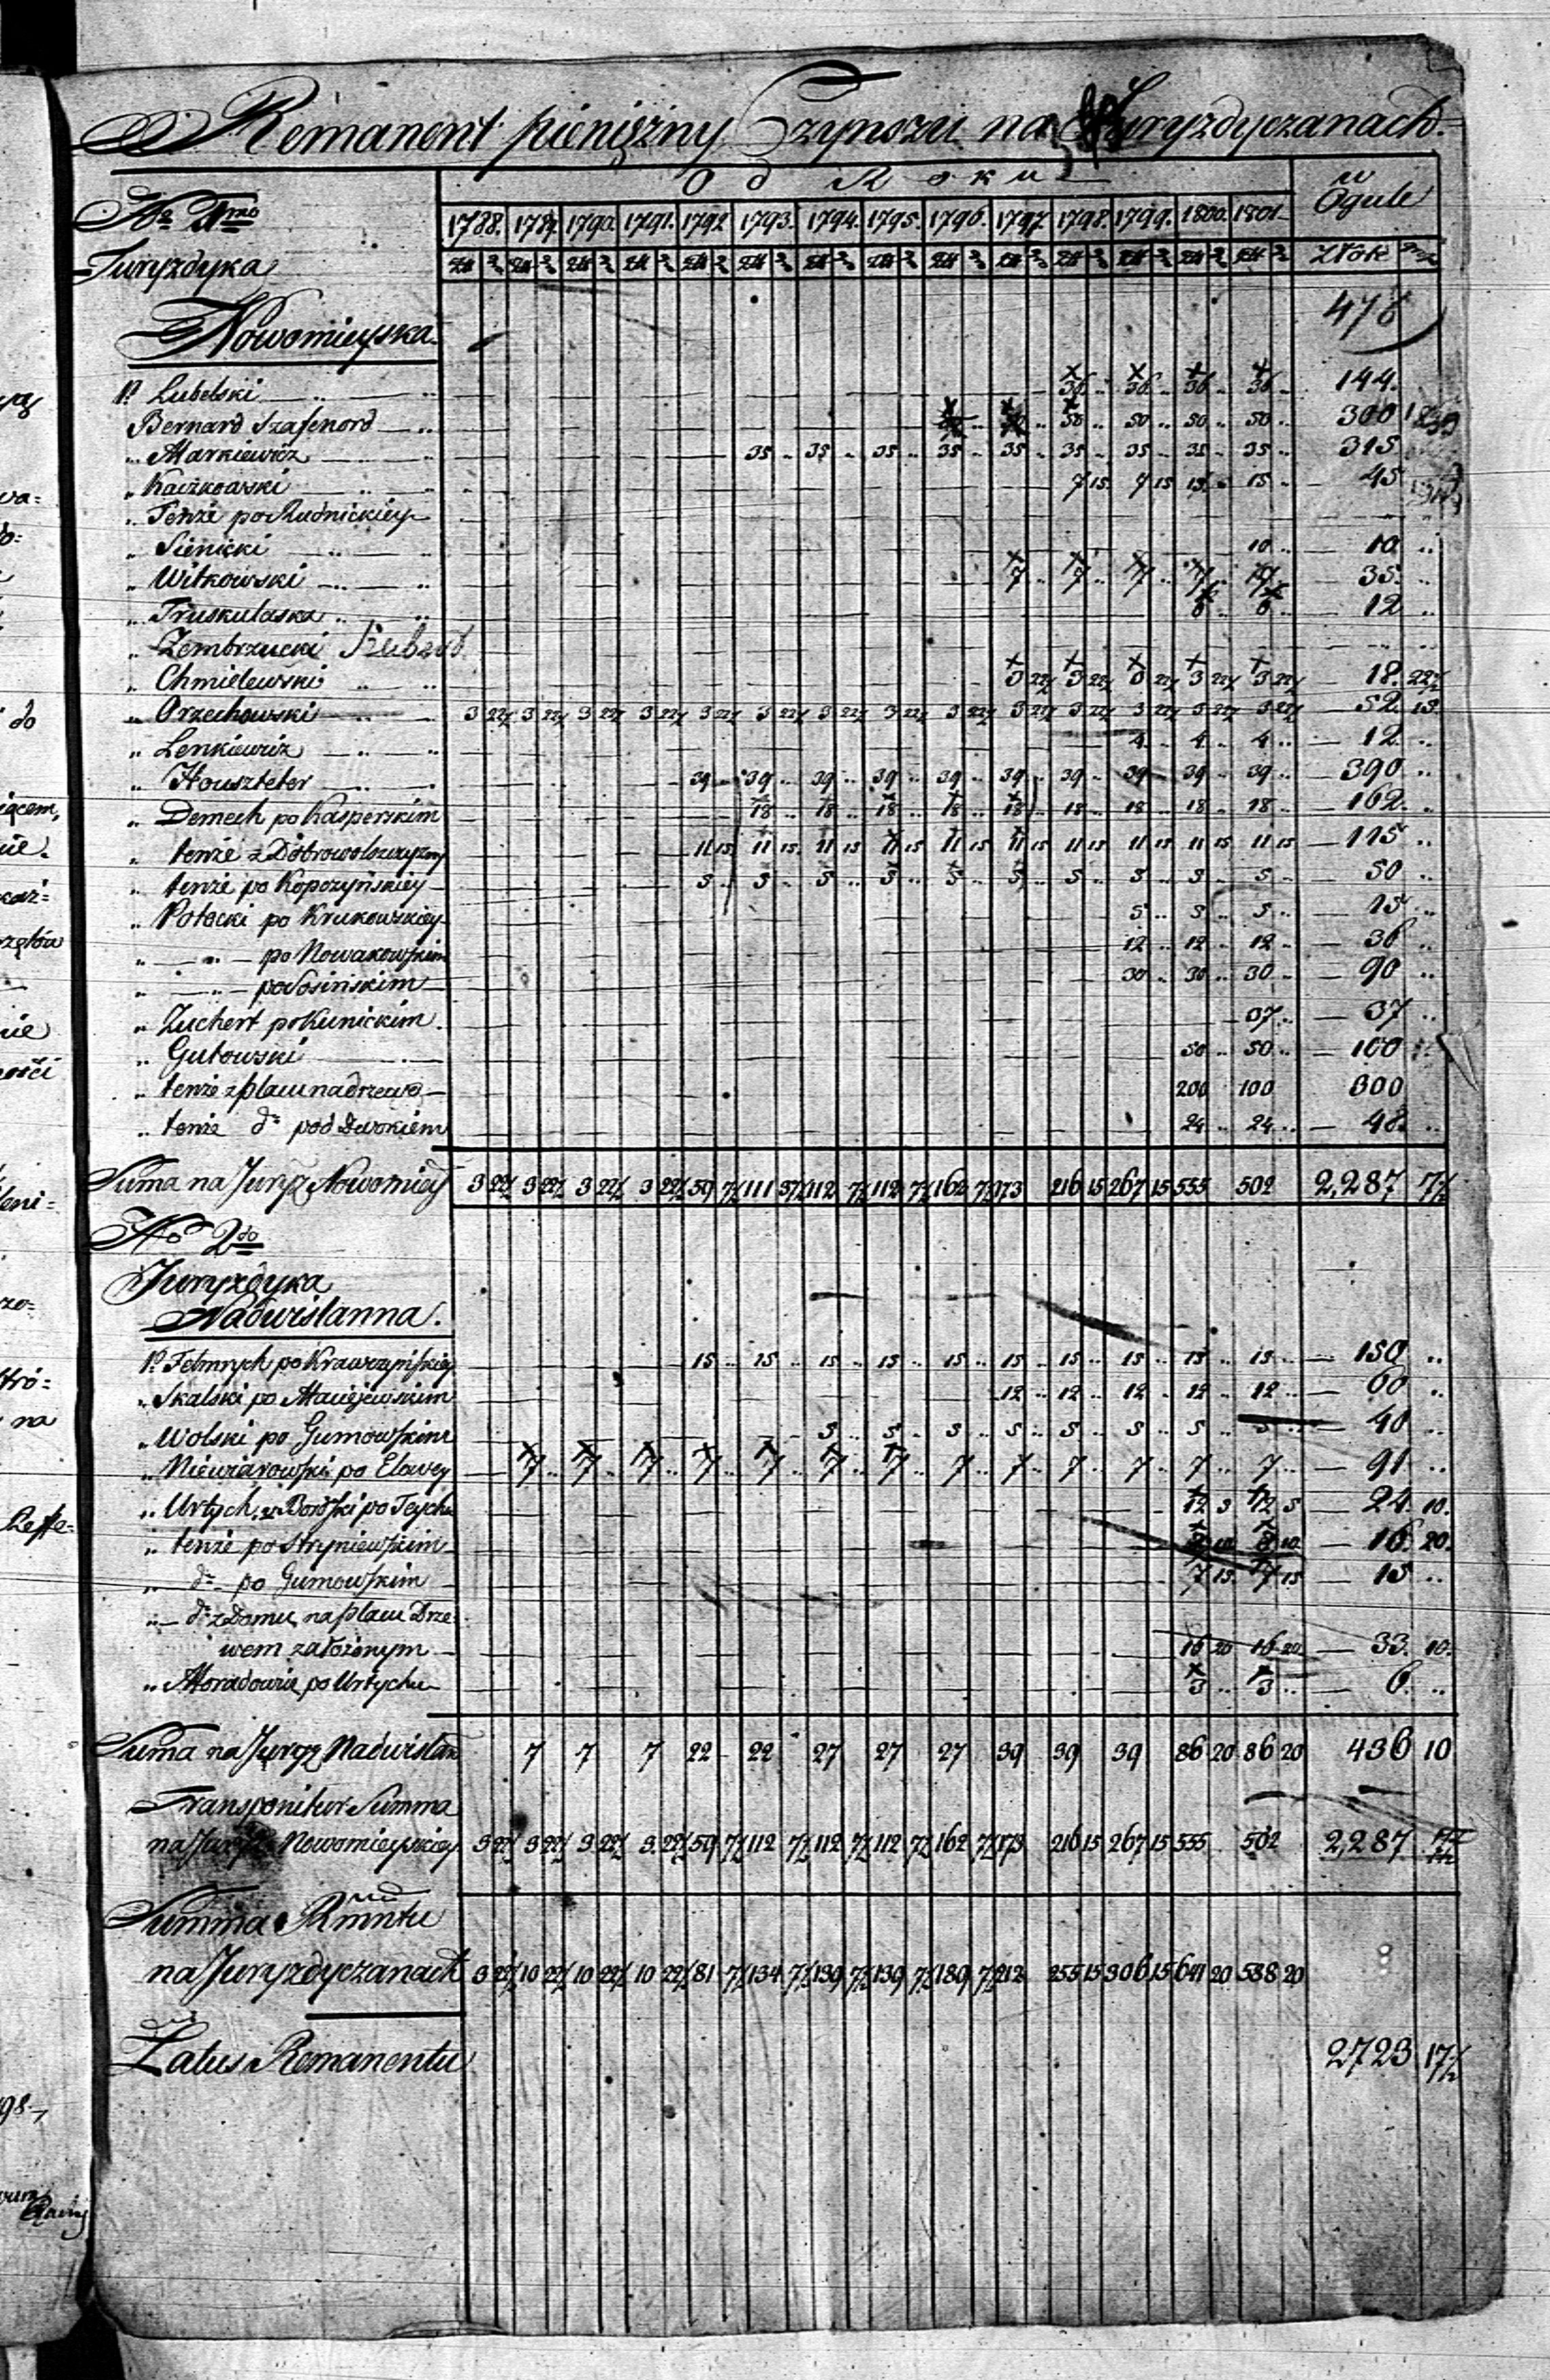 Remanent pieniężny Czynszu na Juryzdyczanach.
Od Roku
w Ogule
No 1mo
1788. 1789. 1790. 1791. 1792 1793. 1794. 1795. 1796. 1797. 1798. 1799. 1800. 1801.
Juryzdyka
Złote
Nowomieyska.
476
P. Lubelski 36 .. 36 .. 36 .. 36 .. 144.
Bernard Szafenord 50 .. 50 .. 50 .. 50 .. 300
„ Markiewicz 35 .. 35 .. 35 .. 35 .. 35 .. 35 .. 35 .. 35 .. 35 .. 315.
„ Kaczkowski 7 15 7 15 15 .. 15 .. 45
„ Tenże po Rudnickiey
„ Sienicki 10 .. 10 ..
„ Witkowski 7 .. 7 .. 7 .. 7 .. 7 .. 35 ..
„ Truskulaska 6 .. 6 .. 12 ..
„ Zembrzucki
„ Chmielewski 3 22½ 3 22½ 3 22½ 3 22½ 3 22½ 18. 22½
„ Orzechowski 3 22½ 3 22½ 3 22½ 3 22½ 3 22½ 3 22½ 3 22½ 3 22½ 3 22½ 3 22½ 3 22½ 3 22½ 3 22½ 3 22½ 52. 15.
„ Lenkiewicz 4 .. 4 .. 4 .. 12 ..
„ Houszteter 39 .. 39 .. 39 .. 39 .. 39 .. 39 .. 39 .. 39 .. 39 .. 39 .. 390 ..
„ Demech po Kasperskim 18 .. 18 .. 18 .. 18 .. 18 .. 18 .. 18 .. 18 .. 18 .. 162. ..
„ tenże z Dobrowolszczyzny 11 15 11 15 11 15 11 15 11 15 11 15 11 15 11 15 11 15 11 15 115 ..
„ tenże po Kopczyńskiey 5 .. 5 .. 5 .. 5 .. 5 .. 5 .. 5 .. 5 .. 5 .. 5 .. 50 ..
„ Potocki po Krukowskiey 5 .. 5 .. 5 .. 15 ..
„ .. po Nowakowskim 12 .. 12 .. 12 .. 36 ..
„ .. po Sosińskim 30 .. 30 .. 30 .. 90 ..
„ Zuchert po Kunickim. 37 .. 37 ..
„ Gutowski 50 .. 50 .. 100
„ tenże z placu na drzewo 200 100 300
„ tenże do pod Dworkiem 24 .. 24 .. 48. ..
Suma na Juryz Nowomiey 3 22½ 3 22½ 3 22½ 3 22½ 59 7½ 111 37½ 112 7½ 112 7½ 162 7½ 173 216 15 267 15 555 502 2,287 7½
No 2do
Juryzdyka
Nadwislanna.
P. Felmrych po Krawczyńskiey 15 .. 15 .. 15 .. 15 .. 15 .. 15 .. 15 .. 15 .. 15 .. 15 .. 150 ..
„ Skalski po Maciejewskim 12 .. 12 .. 12 .. 12 .. 12 .. 60 ..
„ Wolski po Gumowskim 5 .. 5 .. 5 .. 5 .. 5 .. 5 .. 5 .. 5 .. 40 ..
„ Niewiarowski po Elawey 7 .. 7 .. 7 .. 7 .. 7 .. 7 .. 7 .. 7 .. 7 .. 7 .. 7 .. 7 .. 7 .. 91 ..
„ Urtych po Teychu 12 5 12 5 24. 10.
„ tenże po Stryniewskim 8 10 8 10 16. 20.
„ do po Gumowskim 7 15 7 15 15 ..
„ do z Domu na placu Drze-
wem założonym 16 20 16 20 33. 10.
„ Moradowicz po Urtychu 3 .. 3 .. 6. ..
Suma na Juryz Nadwislan 7 7 7 22 22 27 27 27 39 39 39 86 20 86 20 436 10
Transponitur Summa
na Juryz Nowomieyskiey 3 22½ 3 22½ 3 22½ 3 22½ 59 7½ 112 7½ 112 7½ 112 7½ 162 7½ 173 216 15 267 15 555 502 2,287 7½
Summa Rmntu
na Juryzdyczanach 3 22½ 10 22½ 10 22½ 10 22½ 81 7½ 134 7½ 139 7½ 139 7½ 189 7½ 212 255 15 306 15 641 20 588 20
Latus Remanentu 2723 17½